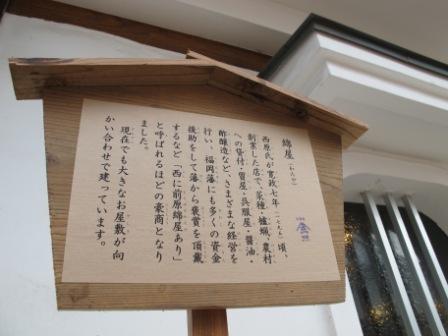 綿屋
西原氏が寛政七年(一七九五)頃、
創業した店で、菜種・櫨蝋、農村
への貸付・質屋・呉服屋・醤油・
酢醸造など、さまざまな経営を
行い、福岡藩にも多くの資金
援助をして藩から褒賞を頂戴
するなど「西に前原綿屋あり」
と呼ばれるほどの豪商となり
ました。
現在でも大きなお屋敷が向
かい合わせで建っています。